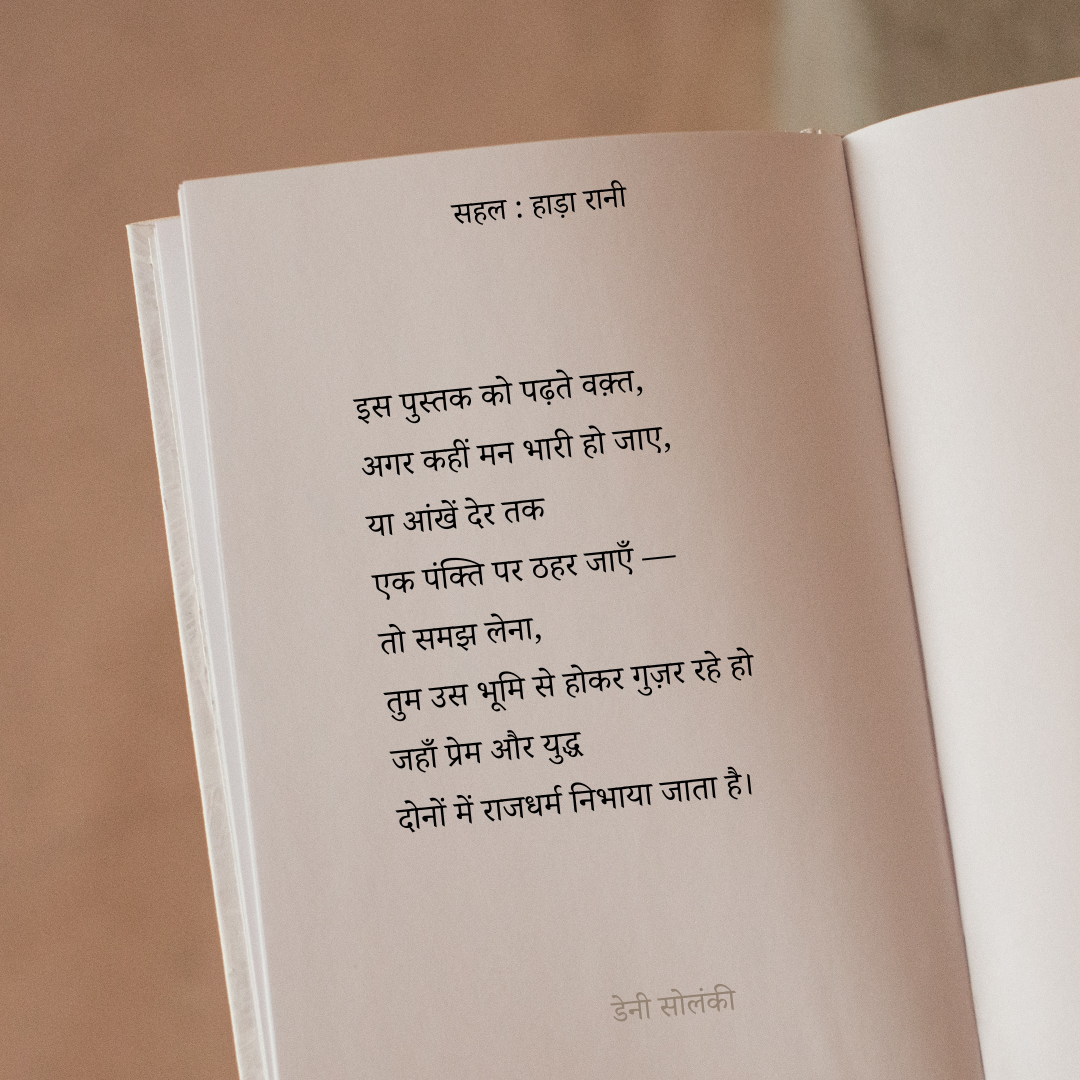 सहल : हाड़ा रानी
इस पुस्तक को पढ़ते वक़्त,
अगर कहीं मन भारी हो जाए,
या आंखें देर तक
एक पंक्ति पर ठहर जाएँ —
तो समझ लेना,
तुम उस भूमि से होकर गुज़र रहे हो
जहाँ प्रेम और युद्ध
दोनों में राजधर्म निभाया जाता है।
डेनी सोलंकी